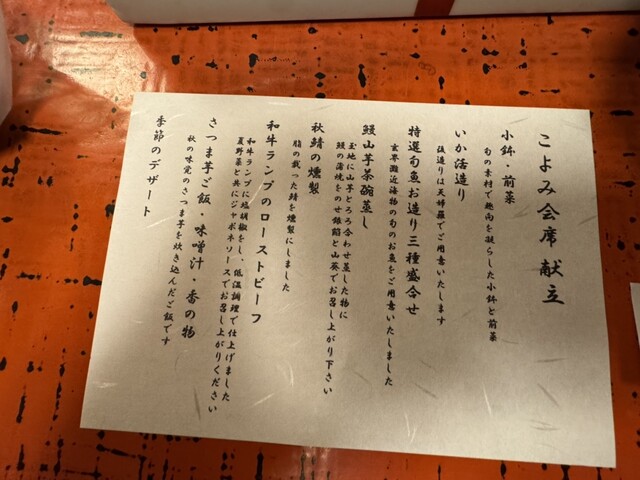 こよみ会席 献立
小鉢・前菜
旬の素材で趣向を凝らした小鉢と前菜
いか活造り
後造りは天婦羅でご用意いたします
特選旬魚お造り三種盛合せ
玄界灘近海物の旬のお魚をご用意いたしました
鰻山芋茶碗蒸し
玉地に山芋とろろ合わせ蒸した物に
鰻の蒲焼をのせ銀餡と山葵でお召し上がり下さい
秋鯖の燻製
脂の載った鯖を燻製にしました
和牛ランプのローストビーフ
和牛ランプに塩胡椒をし、低温調理で仕上げました
夏野菜と共にジャポネソースでお召し上がりください
さつま芋ご飯・味噌汁・香の物
秋の味覚のさつま芋を炊き込んだご飯です
季節のデザート